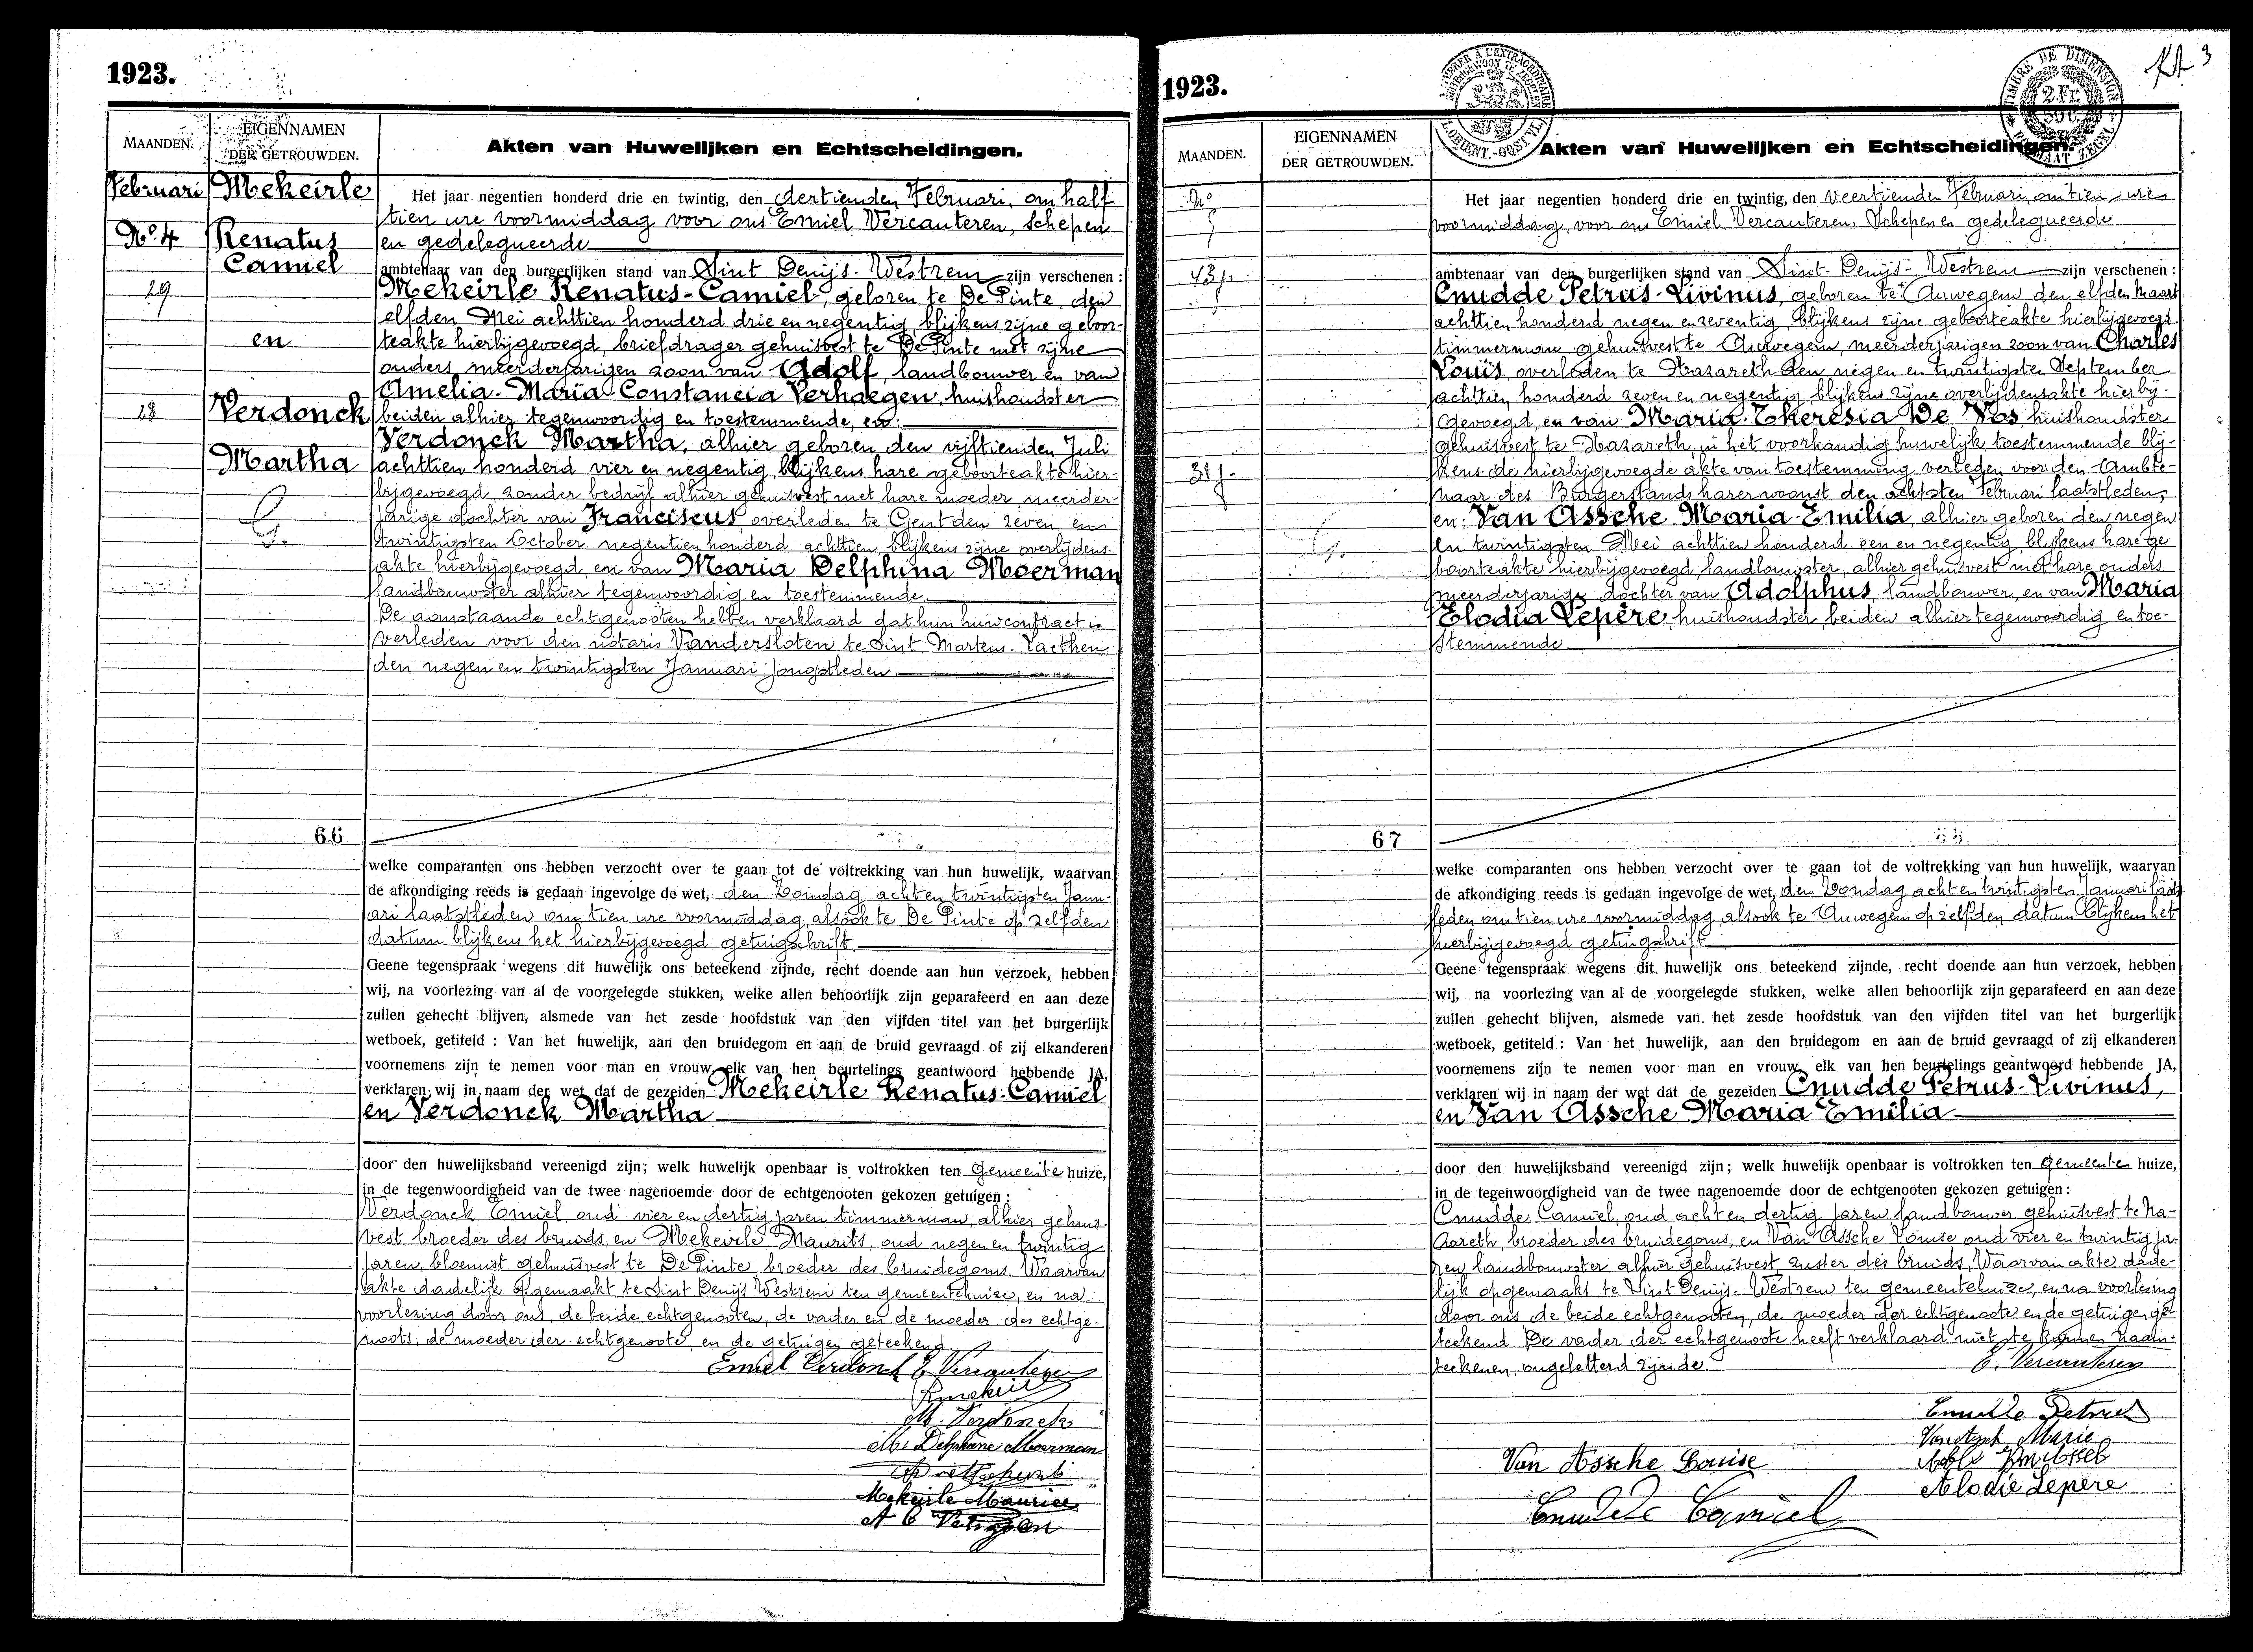 1923.
MAANDEN.
EIGENNAMEN
DER GETROUWDEN.
Akten van Huwelijken en Echtscheidingen.
Februari
Mekeirle
Nº 4
Renatus
Camiel
29
en
28
Verdonck
Martha
G.
66
Het jaar negentien honderd drie en twintig, den dertienden Februari, om half
tien ure voormiddag voor ons Emiel Vercauteren, schepen
en gedelegueerde
ambtenaar van den burgerlijken stand van Sint Denijs-Westrem zijn verschenen :
Mekeirle Renatus-Camiel, geboren te De Pinte, den
elfden Mei achttien honderd drie en negentig, blijkens zijne geboor-
teakte hierbijgevoegd, briefdrager gehuisvest te De Pinte met zijne
ouders, meerderjarigen zoon van Adolf, landbouwer en van
Amelia-Maria-Constancia Verhaegen, huishoudster
beiden alhier tegenwoordig en toestemmende, en:
Verdonck Martha, alhier geboren den vijftienden Juli
achttien honderd vier en negentig, blijkens hare geboorteakte hier-
bijgevoegd, zonder bedrijf alhier gehuisvest met hare moeder, meerder-
jarige dochter van Franciscus, overleden te Gent den zeven en
twintigsten October negentien honderd achttien, blijkens zijne overlijdens-
akte hierbijgevoegd, en van Maria Delphina Moerman
landbouwster alhier tegenwoordig en toestemmende.
De aanstaande echtgenooten hebben verklaard dat hun huwcontract is
verleden voor den notaris Vandersloten te Sint Martens-Laethem
den negen en twintigsten Januari jongstleden.
welke comparanten ons hebben verzocht over te gaan tot de voltrekking van hun huwelijk, waarvan
de afkondiging reeds is gedaan ingevolge de wet, den Zondag acht en twintigsten Janu-
ari laatstleden om tien ure voormiddag alsook te De Pinte op zelfden
datum blijkens het hierbijgevoegd getuigschrift.
Geene tegenspraak wegens dit huwelijk ons beteekend zijnde, recht doende aan hun verzoek, hebben
wij, na voorlezing van al de voorgelegde stukken, welke allen behoorlijk zijn geparafeerd en aan deze
zullen gehecht blijven, alsmede van het zesde hoofdstuk van den vijfden titel van het burgerlijk
wetboek, getiteld : Van het huwelijk, aan den bruidegom en aan de bruid gevraagd of zij elkanderen
voornemens zijn te nemen voor man en vrouw, elk van hen beurtelings geantwoord hebbende JA,
verklaren wij in naam der wet dat de gezeiden Mekeirle Renatus-Camiel
en Verdonck Martha
door den huwelijksband vereenigd zijn; welk huwelijk openbaar is voltrokken ten gemeente huize,
in de tegenwoordigheid van de twee nagenoemde door de echtgenooten gekozen getuigen :
Verdonck Emiel, oud vier en dertig jaren timmerman, alhier gehuis-
vest broeder des bruids en Mekeirle Maurits, oud negen en twintig
jaren, bloemist gehuisvest te De Pinte, broeder des bruidegoms. Waarvan
akte dadelijk opgemaakt te Sint Denijs Westrem ten gemeentehuize, en na
voorlezing door ons, de beide echtgenooten, de vader en de moeder des echtge-
noots, de moeder der echtgenoote, en de getuigen geteekend
Emiel Verdonck E Vercauteren
M. Verdonck
M. Delphine Moerman
Mekeirle Maurice
1923.
MAANDEN.
EIGENNAMEN
DER GETROUWDEN.
Akten van Huwelijken en Echtscheidingen.
TIMBRE DE DIMENSION
2 Fr.
3
Nº
5
43 j.
31 j.
G.
67
Het jaar negentien honderd drie en twintig, den veertienden Februari, om tien ure
voormiddag, voor ons Emiel Vercauteren, Schepen en gedelegueerde
ambtenaar van den burgerlijken stand van Sint-Denijs-Westrem zijn verschenen :
Cnudde Petrus-Livinus, geboren te Auwegem den elfden Maart
achttien honderd negen en zeventig, blijkens zijne geboorteakte hierbijgevoegd
timmerman gehuisvest te Auwegem, meerderjarigen zoon van Charles
Louis, overleden te Nazareth den negen en twintigsten September
achttien honderd zeven en negentig blijkens zijne overlijdensakte hierbij-
gevoegd, en van Maria-Theresia De Vos, huishoudster
gehuisvest te Nazareth, in het voorhandig huwelijk toestemmende blij-
kens de hierbijgevoegde akte van toestemming verleden voor den Ambte-
naar des Burgerstands harer woonst den achtsten Februari laatstleden,
en: Van Assche Maria-Emilia, alhier geboren den negen
en twintigsten Mei achttien honderd een en negentig, blijkens hare ge
boorteakte hierbijgevoegd, landbouwster, alhier gehuisvest met hare ouders
meerderjarige dochter van Adolphus, landbouwer, en van Maria
Elodia Lepère, huishoudster, beiden alhier tegenwoordig en toe-
stemmende
welke comparanten ons hebben verzocht over te gaan tot de voltrekking van hun huwelijk, waarvan
de afkondiging reeds is gedaan ingevolge de wet, den Zondag acht en twintigsten Januari laatst
leden om tien ure voormiddag, alsook te Auwegem op zelfden datum blijkens het
hierbijgevoegd getuigschrift
Geene tegenspraak wegens dit huwelijk ons beteekend zijnde, recht doende aan hun verzoek, hebben
wij, na voorlezing van al de voorgelegde stukken, welke allen behoorlijk zijn geparafeerd en aan deze
zullen gehecht blijven, alsmede van het zesde hoofdstuk van den vijfden titel van het burgerlijk
wetboek, getiteld : Van het huwelijk, aan den bruidegom en aan de bruid gevraagd of zij elkanderen
voornemens zijn te nemen voor man en vrouw, elk van hen beurtelings geantwoord hebbende JA,
verklaren wij in naam der wet dat de gezeiden Cnudde Petrus-Livinus,
en Van Assche Maria Emilia
door den huwelijksband vereenigd zijn; welk huwelijk openbaar is voltrokken ten gemeente huize,
in de tegenwoordigheid van de twee nagenoemde door de echtgenooten gekozen getuigen :
Cnudde Camiel, oud acht en dertig jaren landbouwer gehuisvest te Na-
zareth, broeder des bruidegoms, en Van Assche Louise oud vier en twintig ja-
ren landbouwster alhier gehuisvest, zuster des bruids, Waarvan akte dade-
lijk opgemaakt te Sint Denijs-Westrem ten gemeentehuize, en na voorlezing
door ons, de beide echtgenooten, de moeder der echtgenoote en de getuigen ge-
teekend De vader der echtgenoote heeft verklaard niet te kunnen naam-
teekenen, ongeletterd zijnde.
E. Vercauteren
Cnudde Petrus
Marie
Van Assche Louise
Alodie Lepere
Cnudde Camiel